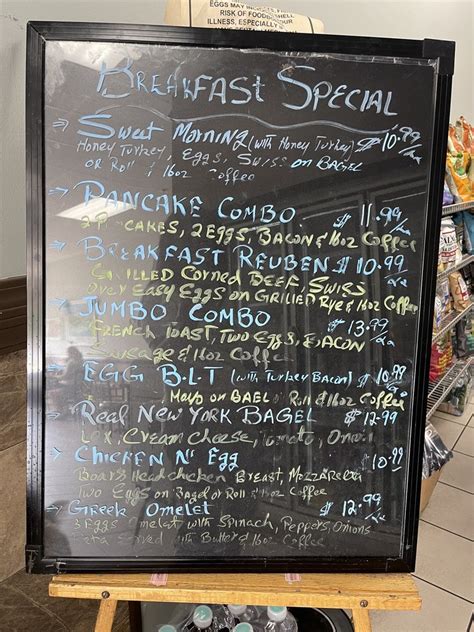 EGGS MAY INCREASE YOUR
RISK OF FOODBORNE
ILLNESS, ESPECIALLY
BREAKFAST SPECIAL
→ Sweet Morning (with Honey Turkey) $10.99/ea
Honey Turkey, EGGS, SWISS on BAGEL
or Roll & 16oz Coffee
→ PANCAKE COMBO $11.99/ea
2 PANCAKES, 2 EGGS, BACON & 16oz Coffee
→ BREAKFAST REUBEN $10.99/ea
GRILLED CORNED BEEF, SWISS
OVER EASY EGGS on GRILLED Rye & 16oz Coffee
→ JUMBO COMBO $13.99/ea
FRENCH TOAST, TWO EGGS, BACON
Sausage & 16oz Coffee
→ EGG B-L-T (with Turkey Bacon) $10.99/ea
Mayo on BAGEL or Roll & 16oz Coffee
→ Real NEW YORK BAGEL $12.99
Lox, Cream Cheese, Tomato, Onion
→ CHICKEN N' Egg $10.99
Boar's Head chicken BREAST, MOZZARELLA
Two EGGS on Bagel or Roll & 16oz Coffee
→ Greek Omelet $12.99/ea
3 Eggs Omelet with Spinach, Peppers, Onions
Feta Served with Butter & 16oz Coffee